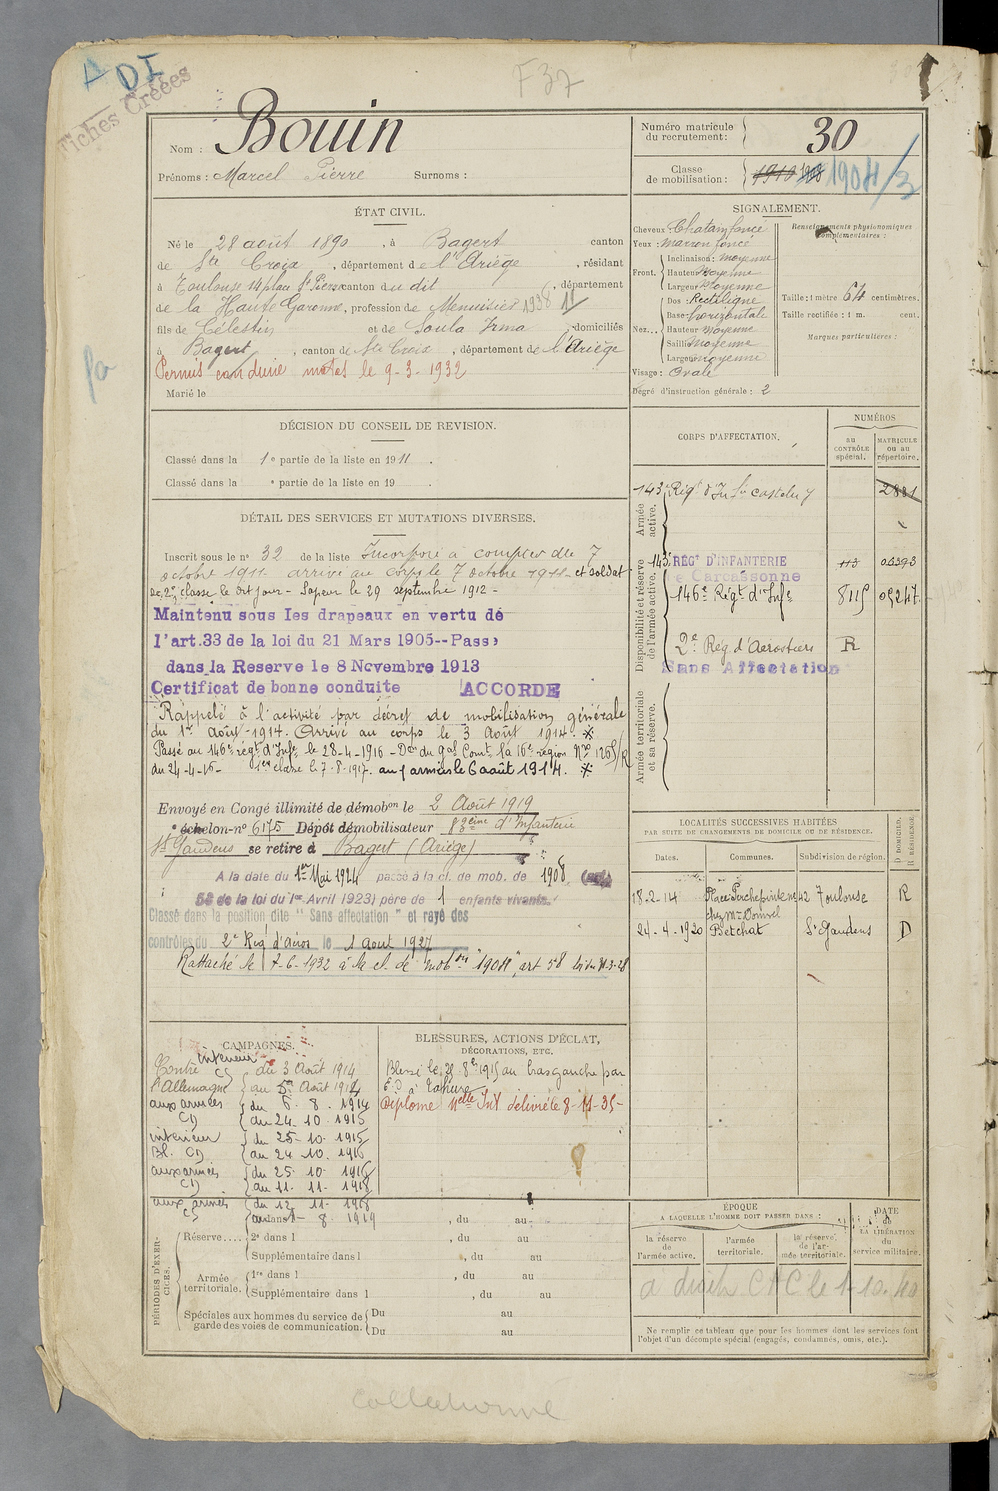 A DI
Fiches Créées
F37
Nom : Bouin
Prénoms : Marcel Pierre Surnoms :
Numéro matricule du recrutement : 30
Classe de mobilisation : 1910 1908 1904/3
ÉTAT CIVIL.
Né le 28 août 1890, à Bagert canton
de Ste Croix, département de l'Ariège, résidant
à Toulouse 14 place St Pierre canton du dit, département
de la Haute Garonne, profession de Menuisier 1938 11
fils de Célestin et de Soula Irma, domiciliés
à Bagert, canton de Ste Croix, département de l'Ariège
Permis conduire motos le 9-3-1932
Marié le
SIGNALEMENT.
Cheveux : Chatain foncé
Yeux : Marron foncé
Front. Inclinaison : moyenne
Hauteur Moyenne
Largeur Moyenne
Nez... Dos : Rectiligne
Base horizontale
Hauteur moyenne
Saillie moyenne
Largeur moyenne
Visage : Ovale
Degré d'instruction générale : 2
Renseignements physionomiques complémentaires :
Taille : 1 mètre 64 centimètres.
Taille rectifiée : 1 m. cent.
Marques particulières :
DÉCISION DU CONSEIL DE REVISION.
Classé dans la 1e partie de la liste en 1911.
Classé dans la e partie de la liste en 19 .
DÉTAIL DES SERVICES ET MUTATIONS DIVERSES.
Inscrit sous le no 32 de la liste Incorporé à compter du 7
octobre 1911 arrivé au corps le 7 octobre 1911 et soldat
de 2e classe le dit jour - Sapeur le 29 septembre 1912 -
Maintenu sous les drapeaux en vertu de
l'art.33 de la loi du 21 Mars 1905--Passé
dans la Reserve le 8 Novembre 1913
Certificat de bonne conduite ACCORDE
Rappelé à l'activité par décret de mobilisation générale
du 1er Août 1914. Arrivé au corps le 3 Août 1914. *
Passé au 146e régt d'Infie le 28-4-1916 - Don du gal Comt la 16e région No 1268/R
du 24-4-16 - 1ère classe le 7-8-1917. aux armées le 6 août 1914. *
Envoyé en Congé illimité de démobon le 2 Août 1919
e échelon-no 6175 Dépôt démobilisateur 83eme d'Infanterie
St Gaudens se retire à Bagert (Ariège)
A la date du 1er Mai 1924 passé à la cl. de mob. de 1908
58 de la loi du 1er Avril 1923) père de 1 enfants vivants.
Classé dans la position dite " Sans affectation " et rayé des
contrôles du 2e Rég d'aéros le 1 Aout 1927
Rattaché le 7-6-1932 à la cl. de mobon "1904", art 58 loi du 31-3-28
CORPS D'AFFECTATION.
NUMÉROS
AU CONTRÔLE spécial.
MATRICULE ou au répertoire.
Armée active.
143e Régt d'Inf Castelny 2881
Disponibilité et réserve de l'armée active.
143e REGT D'INFANTERIE 113 00393
Carcassonne
146e Régt d'Infie 8115 09247
2e Rég d'Aérostiers R
Sans Affectation
Armée territoriale et sa réserve.
LOCALITÉS SUCCESSIVES HABITÉES
PAR SUITE DE CHANGEMENTS DE DOMICILE OU DE RÉSIDENCE.
Dates. Communes. Subdivision de région. D DOMICILE. R RÉSIDENCE.
18-2-14 Place Perchepinte no 42 Toulouse R
chez Mme
24-4-1920 Betchat St Gaudens D
CAMPAGNES.
intérieur
Contre l'Allemagne CD du 3 Août 1914
au 5 Août 1914
aux armées CD du 6-8-1914
au 24-10-1915
intérieur Bl. CD du 25-10-1915
au 24 10. 1916
aux armées CD du 25-10-1916
au 11-11-1918
aux armées C) du 12-11-1918
au 1-8-1919
BLESSURES, ACTIONS D'ÉCLAT,
DÉCORATIONS, ETC.
Blessé le 28 8bre 1915 au bras gauche par
E.O à Tahure
Diplôme Nelle Int délivré le 8-11-35-
PÉRIODES D'EXERCICES.
Réserve.... dans l , du au
2e dans l , du au
Supplémentaire dans l , du au
Armée territoriale. 1re dans l , du au
Supplémentaire dans l , du au
Spéciales aux hommes du service de garde des voies de communication. Du au
Du au
ÉPOQUE
A LAQUELLE L'HOMME DOIT PASSER DANS :
la réserve de l'armée active.
l'armée territoriale.
la réserve de l'armée territoriale.
DATE de LA LIBÉRATION du service militaire.
a droit C A C le 1-10-40
Ne remplir ce tableau que pour les hommes dont les services font
l'objet d'un décompte spécial (engagés, condamnés, omis, etc.).
Collationné